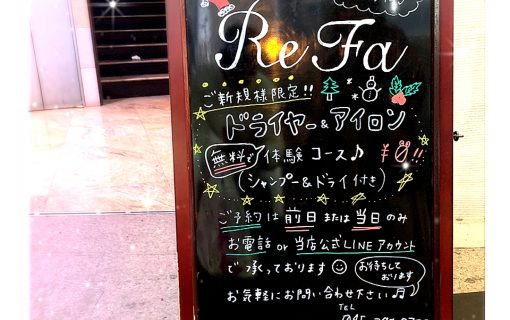 ReFa
ご新規様限定!!
ドライヤー&アイロン
無料で体験コース♪ ¥0!!
(シャンプー&ドライ付き)
ご予約は前日または当日のみ
お電話or当店公式LINEアカウント
で承っております
お待ちしております
お気軽にお問い合わせ下さい♬
TEL